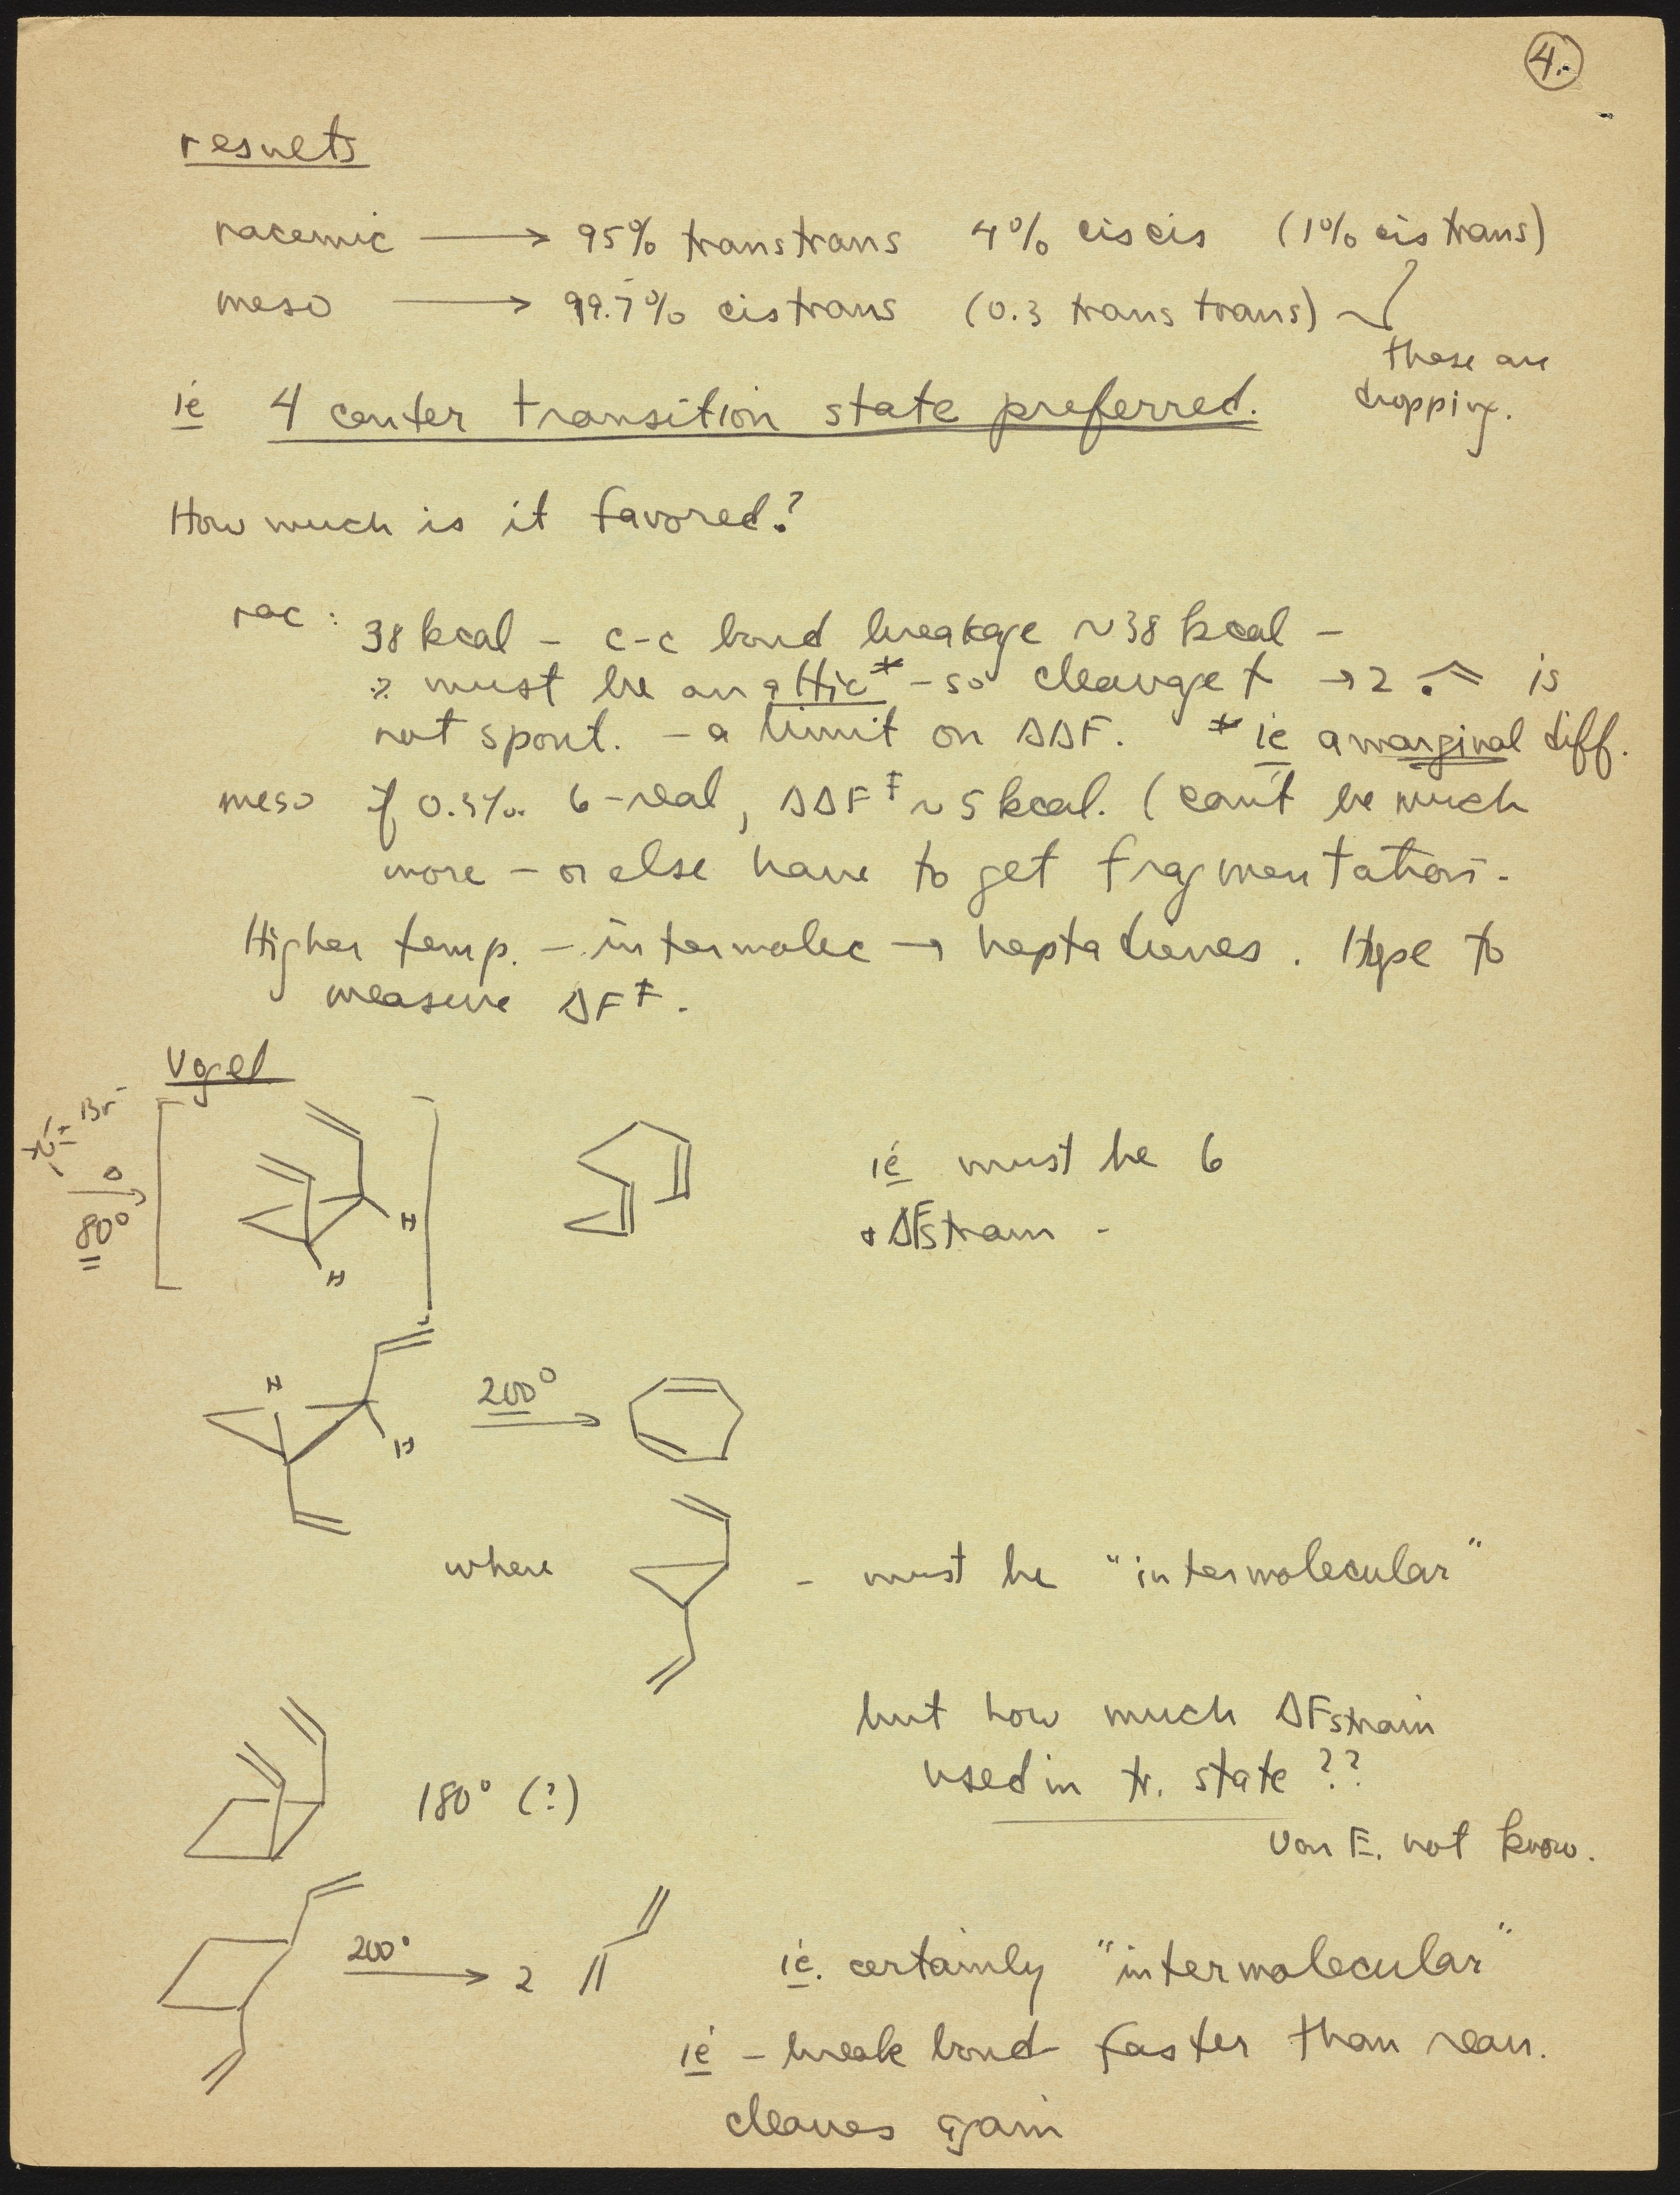 4.
results
racemic → 95% trans trans 4% cis cis (1% cis trans)
meso → 99.7% cis trans (0.3 trans trans)
these are
dropping.
ie 4 center transition state preferred.
How much is it favored?
rac: 38 kcal - c-c bond breakage ~38 kcal -
∴ must be an attic* - so cleavage → 2 is
not spont. - a limit on ΔΔF. * ie a marginal diff.
meso if 0.3% 6-real, ΔΔF‡ ~ 5 kcal. (can't be much
more - or else have to get fragmentation -
Higher temp. - intermolec → heptadienes. Hope to
measure ΔF‡.
Vogel
Br-
80°
H
H
ie must be 6
+ ΔFstrain -
H
H
200°
where
- must be "intermolecular"
but how much ΔFstrain
used in tr. state ??
180° (?)
Von E. not know.
200°
2
ie. certainly "intermolecular"
ie - break bond faster than rear.
cleaves again